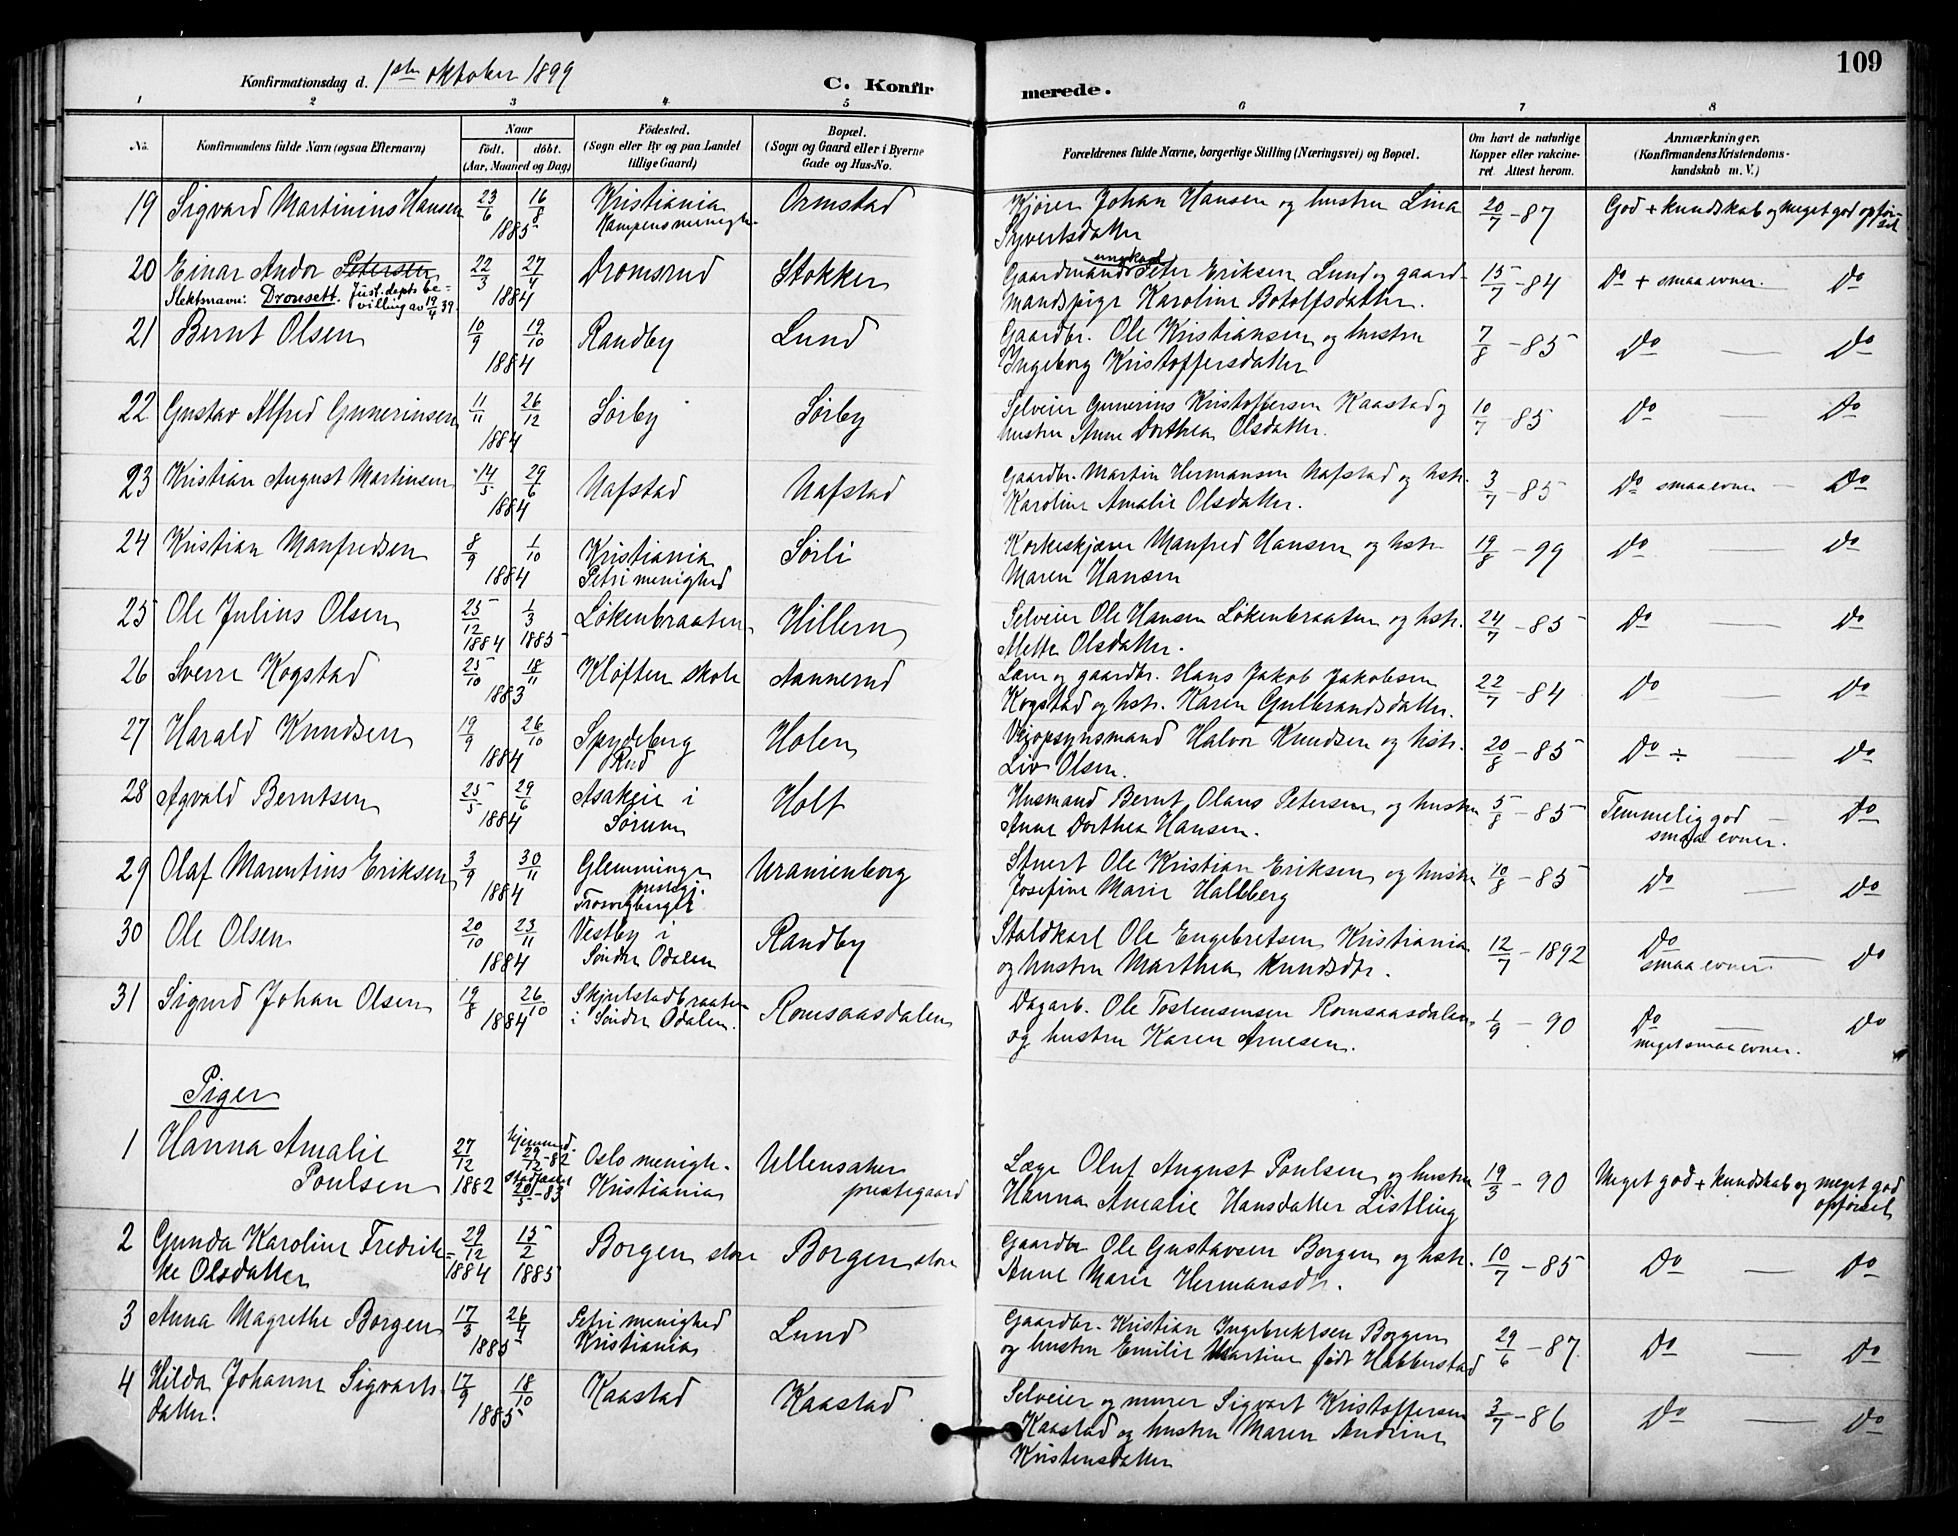 109
Konfirmationsdag d. 1ste oktober 1899
C. Konfir merede.
1 2 3 4 5 6 7 8
No.
Konfirmandens fulde Navn (ogsaa Efternavn)
Naar
födt. döbt.
(Aar, Maaned og Dag)
Födested.
(Sogn eller By og paa Landet
tillige Gaard)
Bopæl.
(Sogn og Gaard eller i Byerne
Gade og Hus-No.
Forældrenes fulde Navne, borgerlige Stilling (Næringsvei) og Bopæl.
Om havt de naturlige
Kopper eller vakcine-
ret. Attest herom.
Anmærkninger.
(Konfirmandens Kristendoms-
kundskab m. V.)
19 Sigvard Martinius Hansen 23/6 16/8 1885 Kristiania Kampens menigh. Ormstad Kjører Johan Hansen og hustru Lina
Syvertsdatter 20/7 - 87 God + kundskab og meget god opførsel
20 Einar Andor Petersen 22/3 27/4 1884 Dromsrud Stokker Gaardmand ungkarl Peter Eriksen Lund og gaard-
mandspige Karoline Botolfsdatter. 15/7 - 84 Do + smaa evner. — Do
Slektsnavn: Dronsett. Just. depts be-
villing av 19/4 39.
21 Bernt Olsen 10/9 19/10 1884 Randby Lund Gaardbr. Ole Kristiansen og hustru
Ingeborg Kristoffersdatter 7/8 - 85 Do — Do
22 Gustav Alfred Gunerinsen 11/11 26/12 1884 Sørby Sørby Selveier Gunerius Kristoffersen Kaastad og
hustru Anne Dorthea Olsdatter. 10/7 - 85 Do — Do
23 Kristian August Martinsen 14/5 29/6 1884 Nafstad Nafstad Gaardbr. Martin Hermansen Nafstad og hstr.
Karoline Amalie Olsdatter. 3/7 - 85 Do smaa evner — Do
24 Kristian Manfredsen 8/9 1/10 1884 Kristiania Petri menighed Sørli Korkeskjærer Manfred Hansen og hstr
Maren Hansen 19/8 - 99 Do Do
25 Ole Julius Olsen 25/12 1884 1/3 1885 Løkenbraaten Hillern Selveier Ole Hansen Løkenbraaten og hstr.
Mette Olsdatter. 24/7 - 85 Do — Do
26 Sverre Kogstad 25/10 18/11 1883 Kløften skole Aannerud Lærer og gaardbr. Hans Jakob Jakobsen
Kogstad og hstr. Karen Gulbrandsdatter. 22/7 - 84 Do — Do
27 Harald Knudsen 19/9 26/10 1884 Spydeberg Rud Holen Veiopsynsmand Halvor Knudsen og hstr.
Liv Olsen. 20/8 - 85 Do ÷ Do
28 Agvald Berntsen 25/5 29/6 1884 Asakeie i Sørum Holt Husmand Bernt Olaus Petersen og hustru
Anne Dorthea Hansen. 5/8 - 85 Temmelig god — Do
smaa evner.
29 Olaf Marentius Eriksen 3/9 30/11 1884 Glemminge prestegj. Uranienborg Stuert Ole Kristian Eriksen og hustru
Josefine Marie Hallberg 10/8 - 85 Do — Do
30 Ole Olsen 20/10 23/11 1884 Vestby i Søndre Odalen Randby Staldkarl Ole Engebretsen Kristiania
og hustru Marthea Knudsdtr. 12/7 - 1892 Do smaa evner — Do
31 Sigurd Johan Olsen 19/8 26/10 1884 Skjulstadbraaten i Søndre Odalen. Romsaasdalen Dagarb. Ole Tostensensen Romsaasdalen
og hustru Karen Arnesen. 1/9 - 90 Do — Do
meget smaa evner.
Piger
1 Hanna Amalie
Poulsen 27/12 1882 hjemmed. 29/12-82 stadfæstet 20/5-83 Oslo menigh. Kristiania Ullensaker prestegaard Læge Oluf August Poulsen og hustru
Hanna Amalie Hansdatter Listling 19/3 - 90 Meget god + kundskab og meget god
opførsel
2 Gunda Karoline Fredrik-
ke Olsdatter 29/12 1884 15/2 1885 Borgen store Borgen store Gaardbr Ole Gustavsen Borgen og hstr.
Anne Marie Hermansdtr. 10/7 - 85 Do — Do
3 Anna Magrethe Borgen 17/3 26/4 1885 Petri menighed Kristiania Lund Gaardbr. Kristian Ingebrektsen Borgen
og hustru Emilie Martine født Habberstad 29/6 - 87 Do — Do
4 Hilda Johanne Sigvarts-
datter. 17/9 18/10 1885 Kaastad Kaastad Selveier og murer Sigvart Kristoffersen
Kaastad og hustru Maren Andrine
Kristensdatter 3/7 - 86 Do — Do